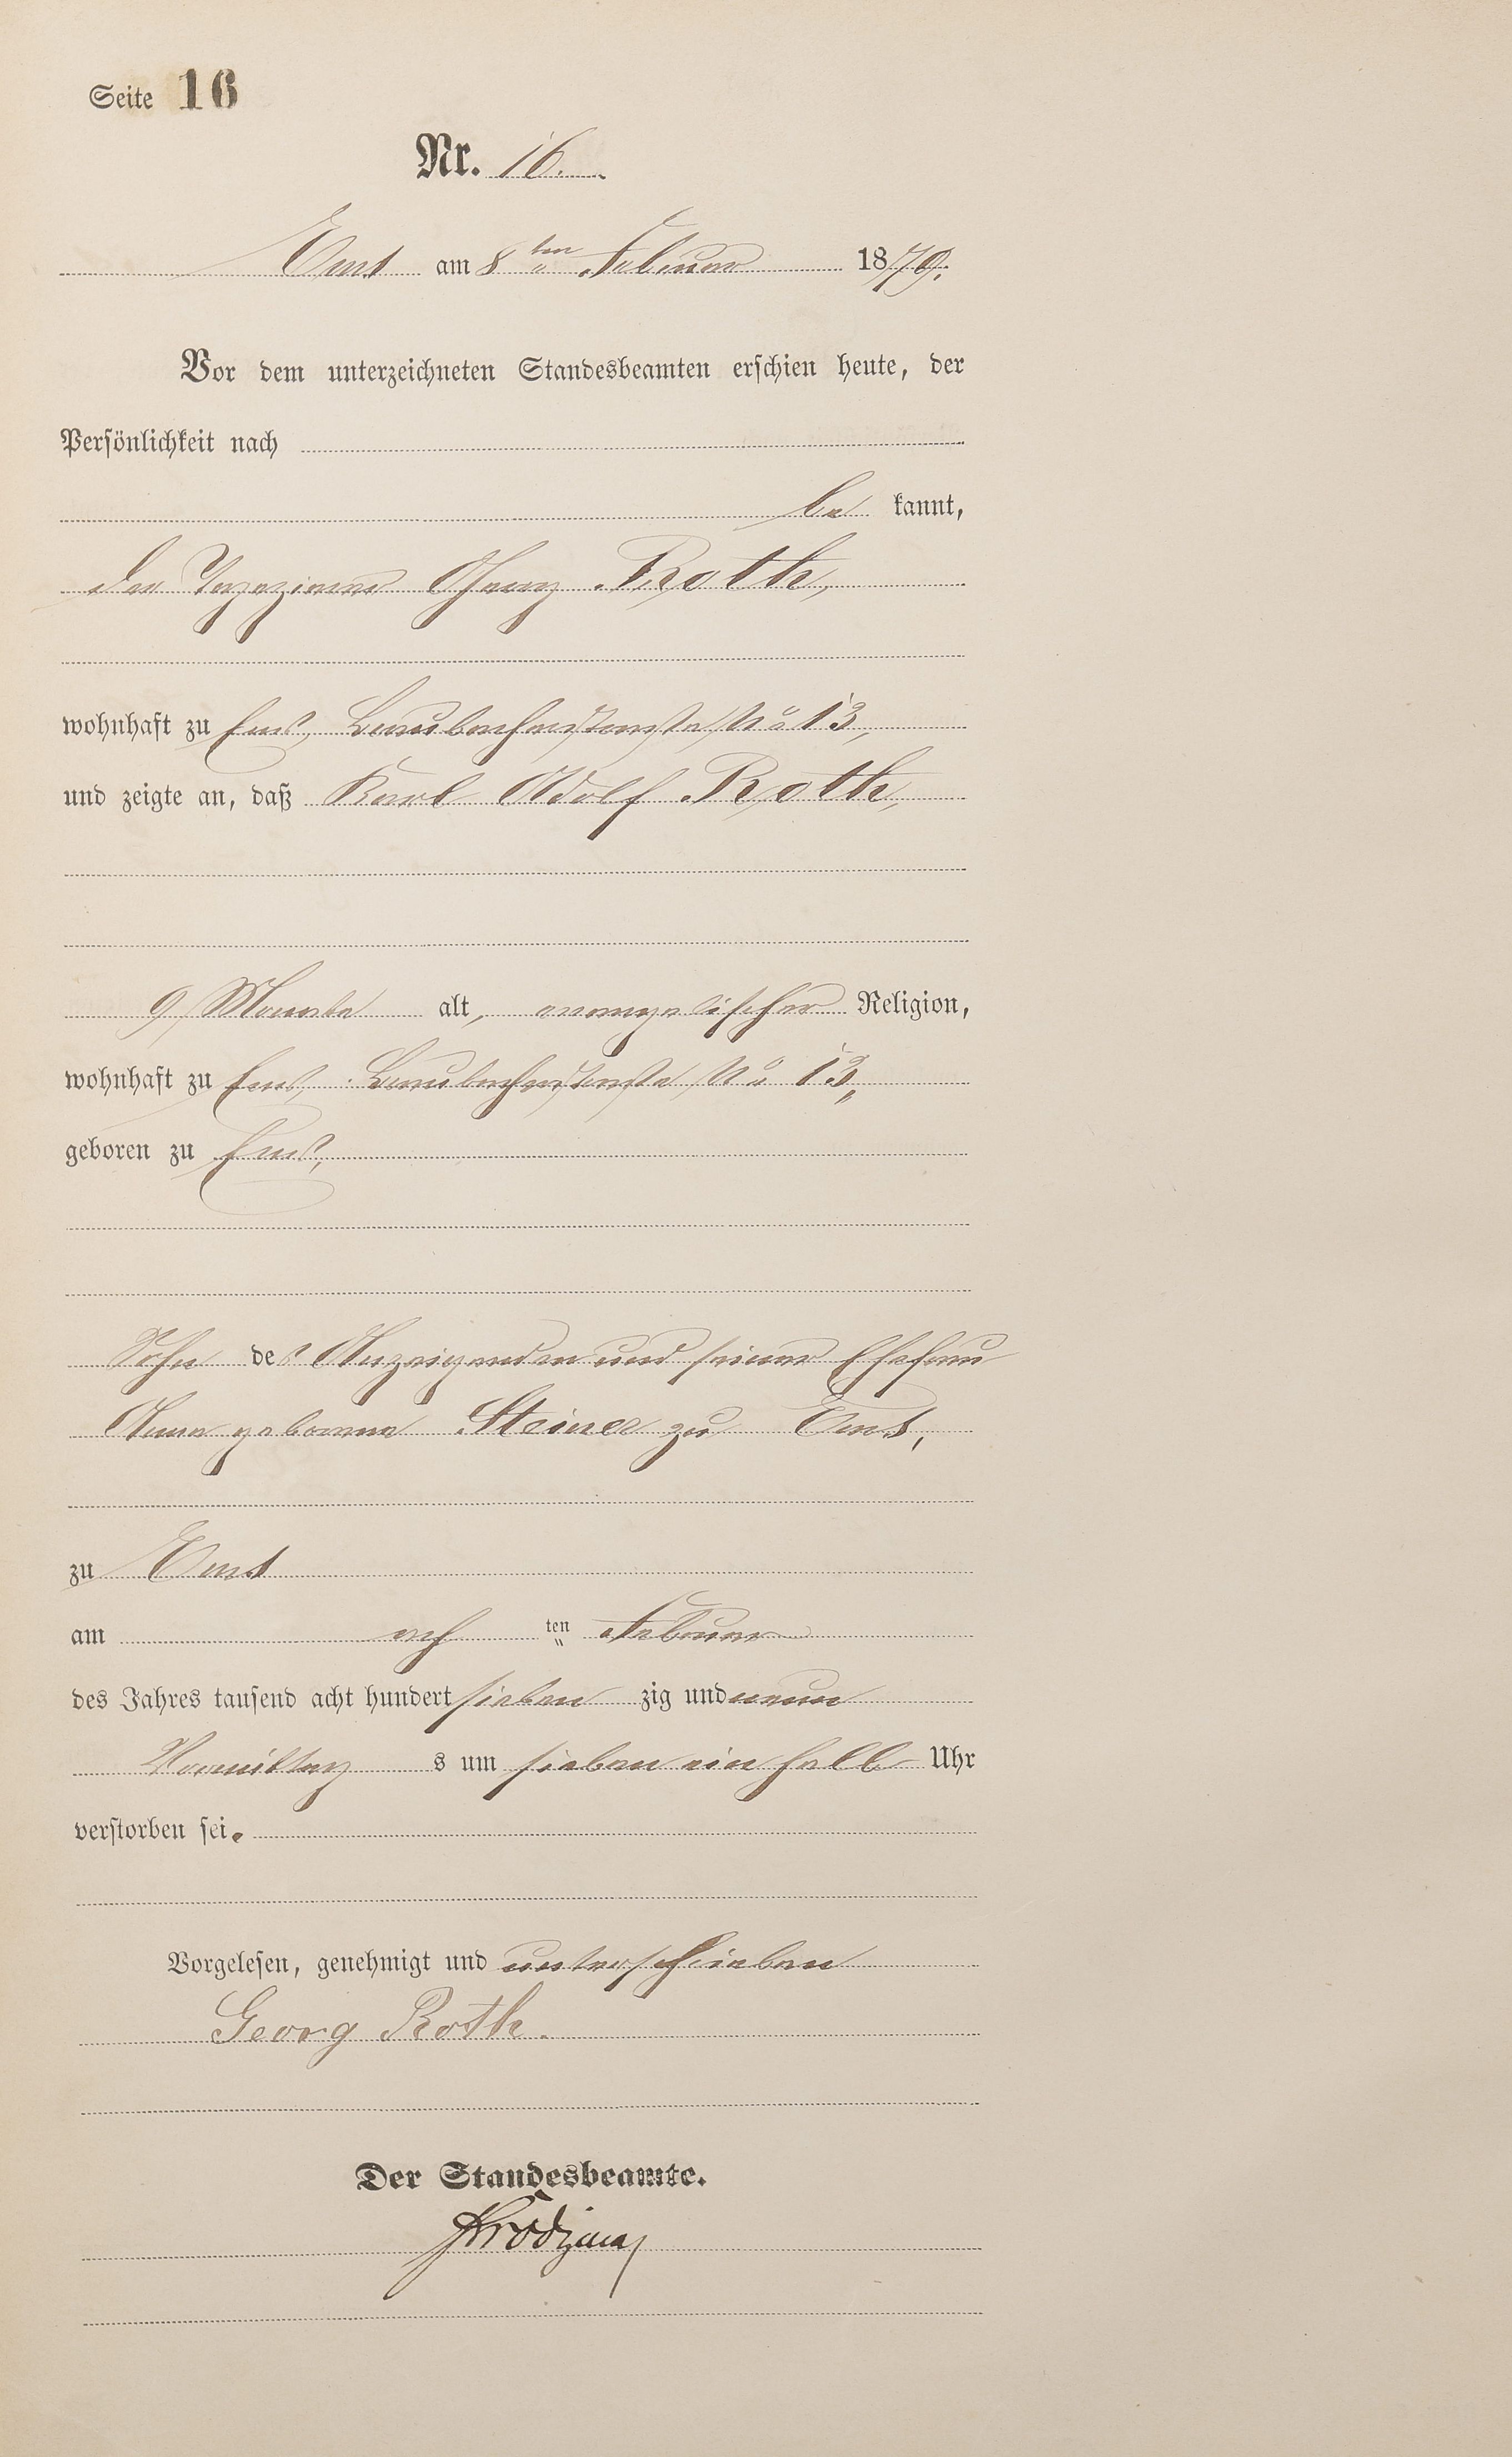 Seite 16
Nr. 16.
Ems am 8ten Februar 1879.
Vor dem unterzeichneten Standesbeamten erschien heute, der
Persönlichkeit nach
be kannt,
der Tapezierer Georg Roth,
wohnhaft zu Ems, No 13,
und zeigte an, daß Karl Adolf Roth,
9 Monate alt, evangelischer Religion,
wohnhaft zu Ems, No 13,
geboren zu Ems,
Sohn des Anzeigenden und seiner Ehefrau
Anna geborene Steiner zu Ems,
zu Ems
am ach ten Februar
des Jahres tausend acht hundert sieben zig und neun
Vormittag s um sieben ein halb Uhr
verstorben sei.
Vorgelesen, genehmigt und unterschrieben
Georg Roth.
Der Standesbeamte.